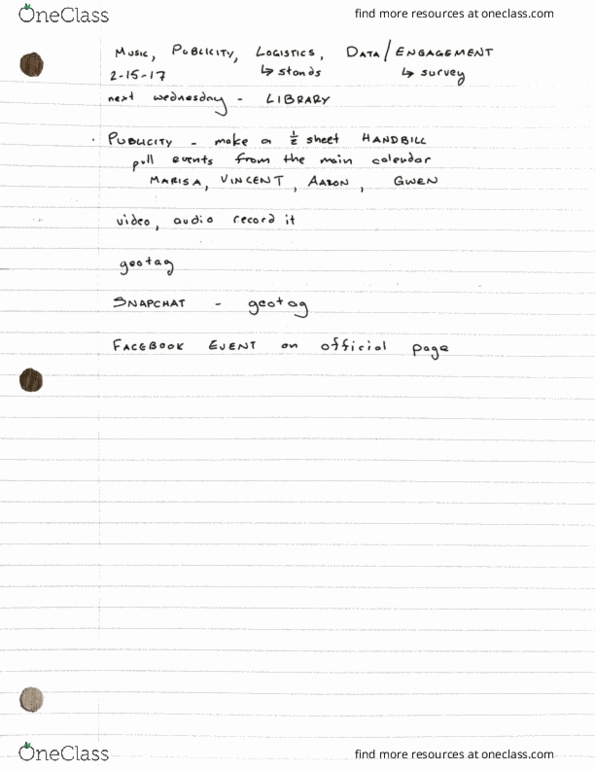 OneClass find more resources at oneclass.com
MUSIC, PUBLICITY, LOGISTICS, DATA/ENGAGEMENT
2-15-17 ↳ stands ↳ survey
next wednesday - LIBRARY
· PUBLICITY - make a ½ sheet HANDBILL
pull events from the main calendar
MARISA, VINCENT, AARON, GWEN
video, audio record it
geotag
SNAPCHAT - geotag
FACEBOOK EVENT on official page
OneClass find more resources at oneclass.com